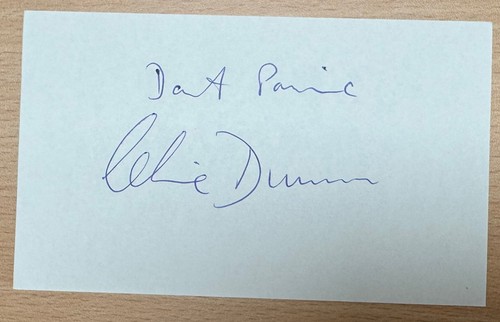 Don't Panic
Clive Dunn